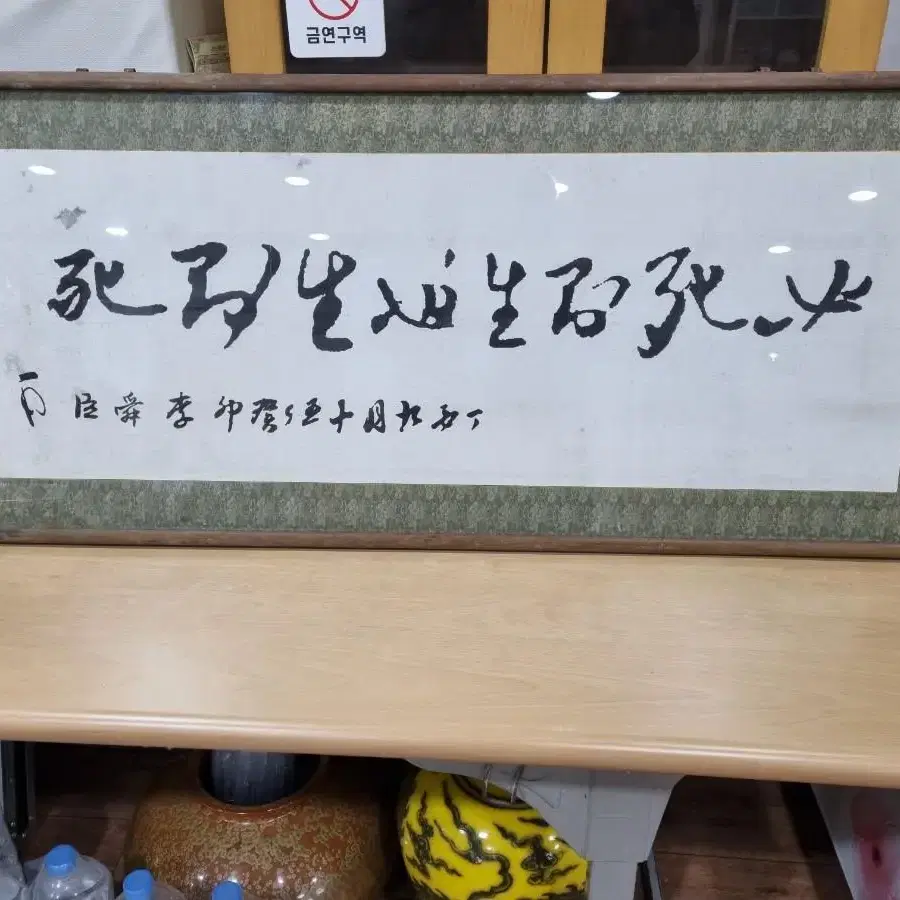 금연구역
必死則生必生則死
丁酉九月十五日癸卯李舜臣